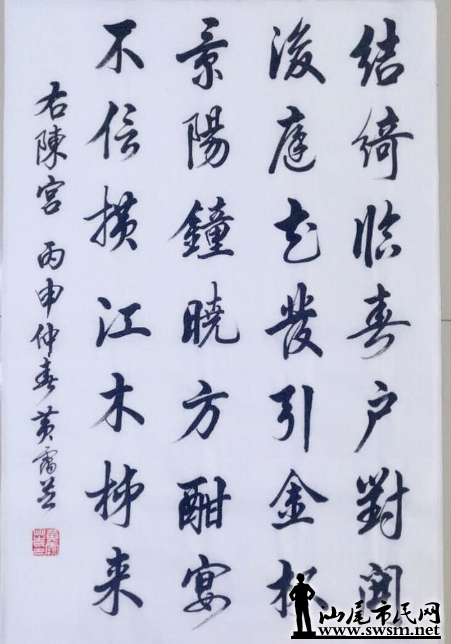 结绮临春户對開
後庭花發引金杯
景陽鐘曉方酣宴
不信横江木柹来
右陳宮 丙申仲春黄霭芸
汕尾市民网
www.swsm.net